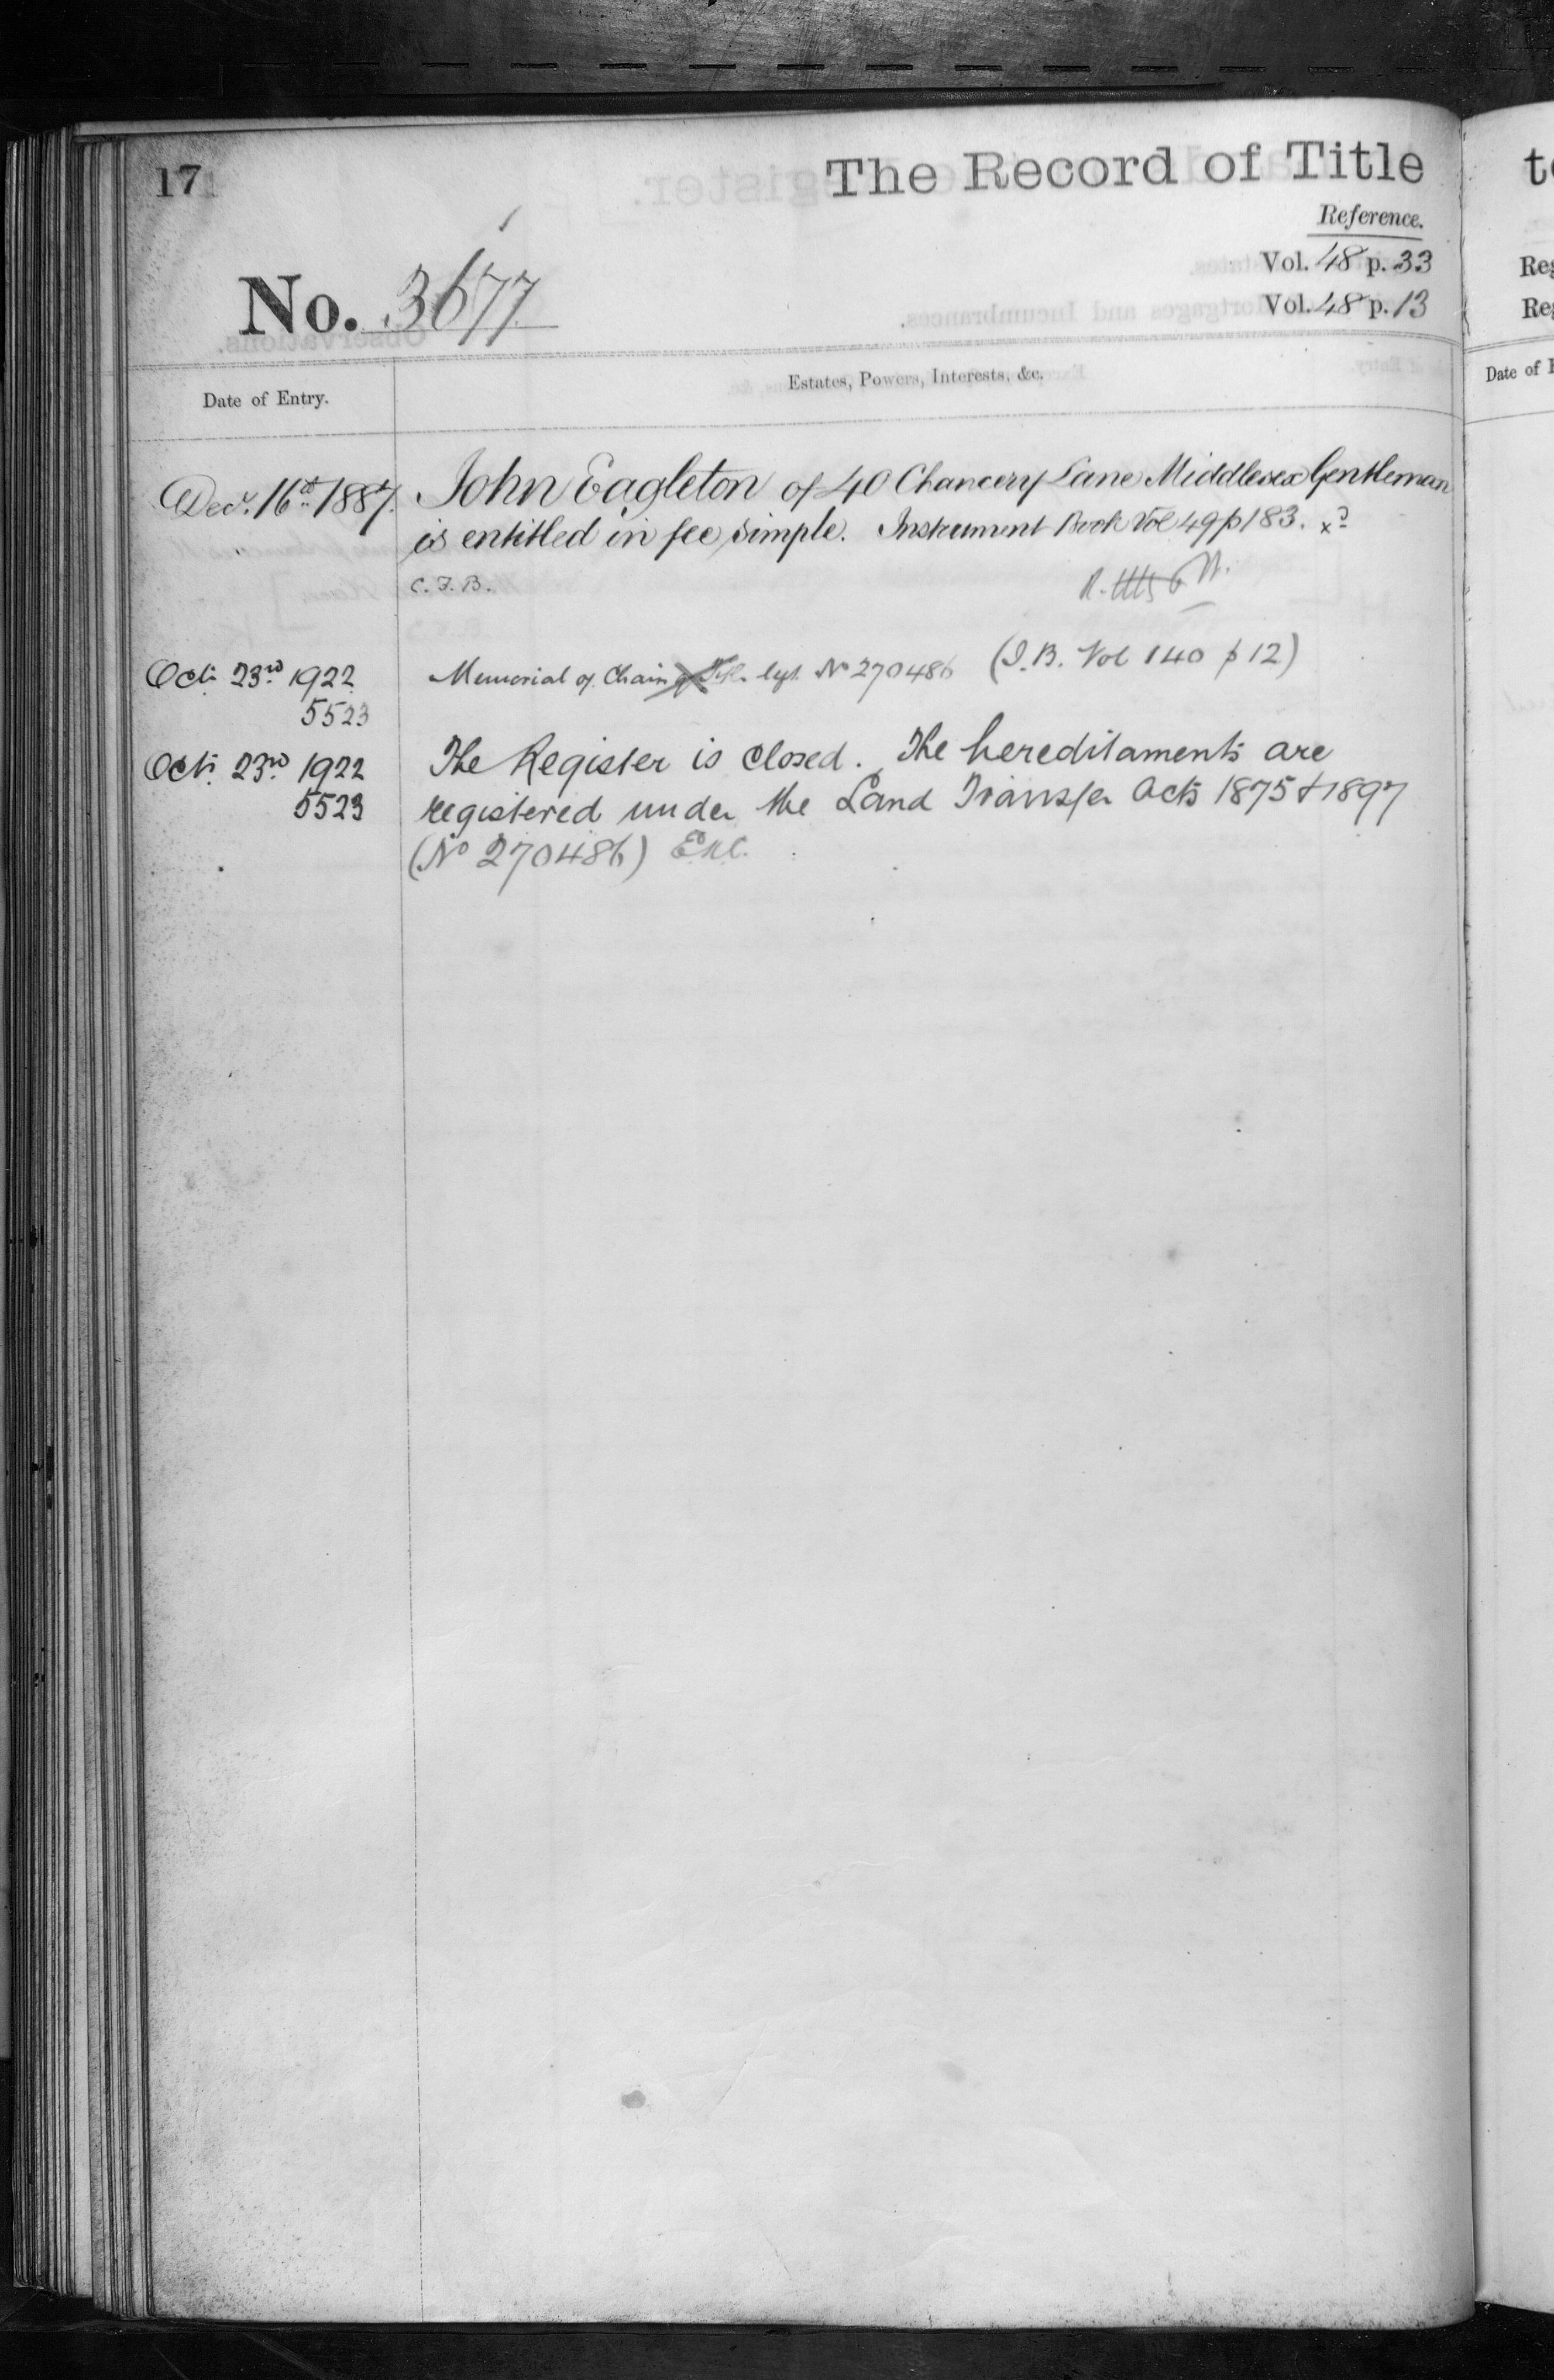 17
The Record of Title
Reference.
No. 3677
Vol. 48 p. 33
Vol. 48 p. 13
Date of Entry.
Estates, Powers, Interests, &c.
Decr. 16th 1887. John Eagleton of 40 Chancery Lane Middlesex Gentleman
is entitled in fee simple. Instrument Book Vol 49 p 183. xd
C. F. B.
Oct. 23rd 1922 Memorial of Chain of Title lgt No 270486 (I.B. Vol 140 p 12)
5523
Oct. 23rd 1922 The Register is closed. The hereditaments are
5523 registered under the Land Transfer Acts 1875 & 1897
(No 270486)
to
Reg
Reg
Date of E